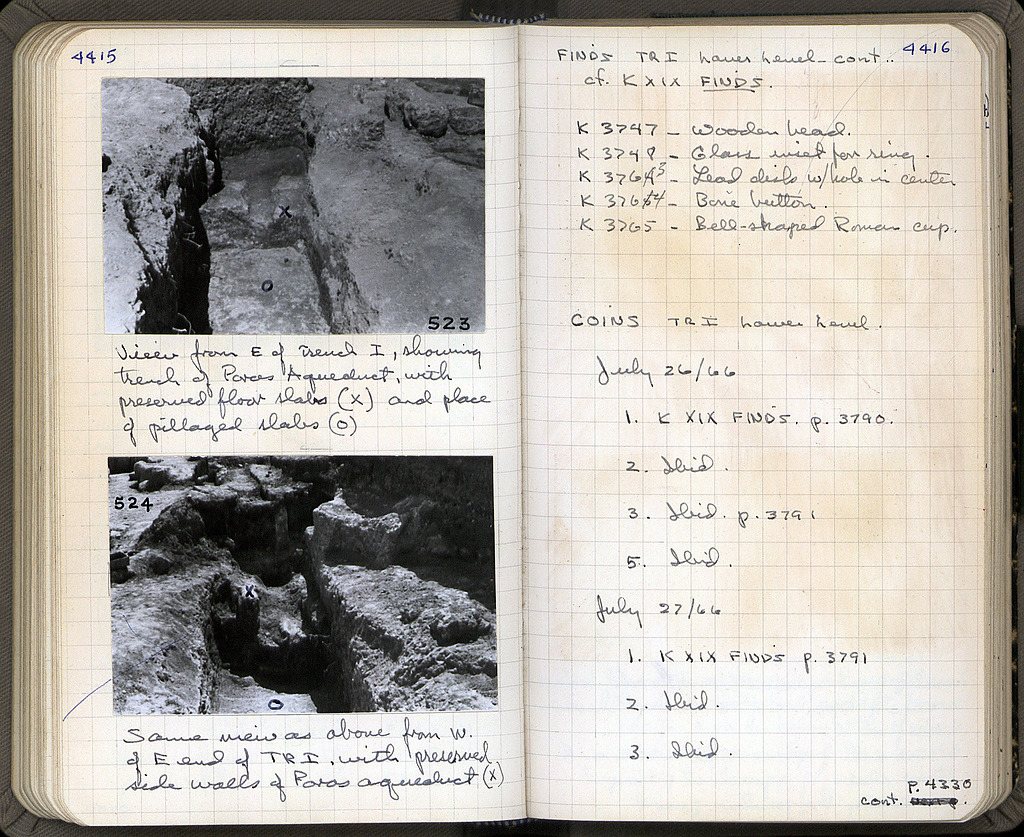 4415
X
O
523
View from E of Trench I, showing
trench of Poros Aqueduct, with
preserved floor slabs (X) and place
of pillaged slabs (O)
524
X
O
Same view as above from W.
of E end of TR I, with preserved
side walls of Poros aqueduct (X)
4416
FINDS TR I Lower Level - cont..
cf. K XIX FINDS.
K 3747 - Wooden bead.
K 3748 - Glass inset for ring.
K 3763 - Lead disk w/hole in center
K 3764 - Bone button.
K 3765 - Bell-shaped Roman cup.
COINS TR I Lower Level.
July 26/66
1. K XIX FINDS. p. 3790.
2. Ibid.
3. Ibid. p. 3791
5. Ibid.
July 27/66
1. K XIX FINDS p. 3791
2. Ibid.
3. Ibid.
p. 4330
cont.